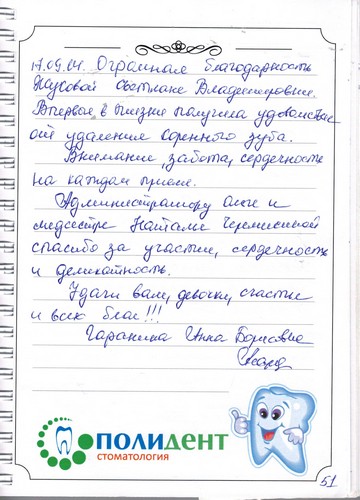 17.09.04. Огромная благодарность
Жуковой Светлане Владимировне.
Впервые в жизни получила удовольствие
от удаления коренного зуба.
Внимание, забота, сердечность
на каждом приеме.
Администратору Ольге и
медсестре Наталье Черемисиной
спасибо за участие, сердечность
и деликатность.
Удачи вам, девочки, счастье
и всех благ!!!
Гаранина Инна Борисовна
ПОЛИДЕНТ
СТОМАТОЛОГИЯ
51